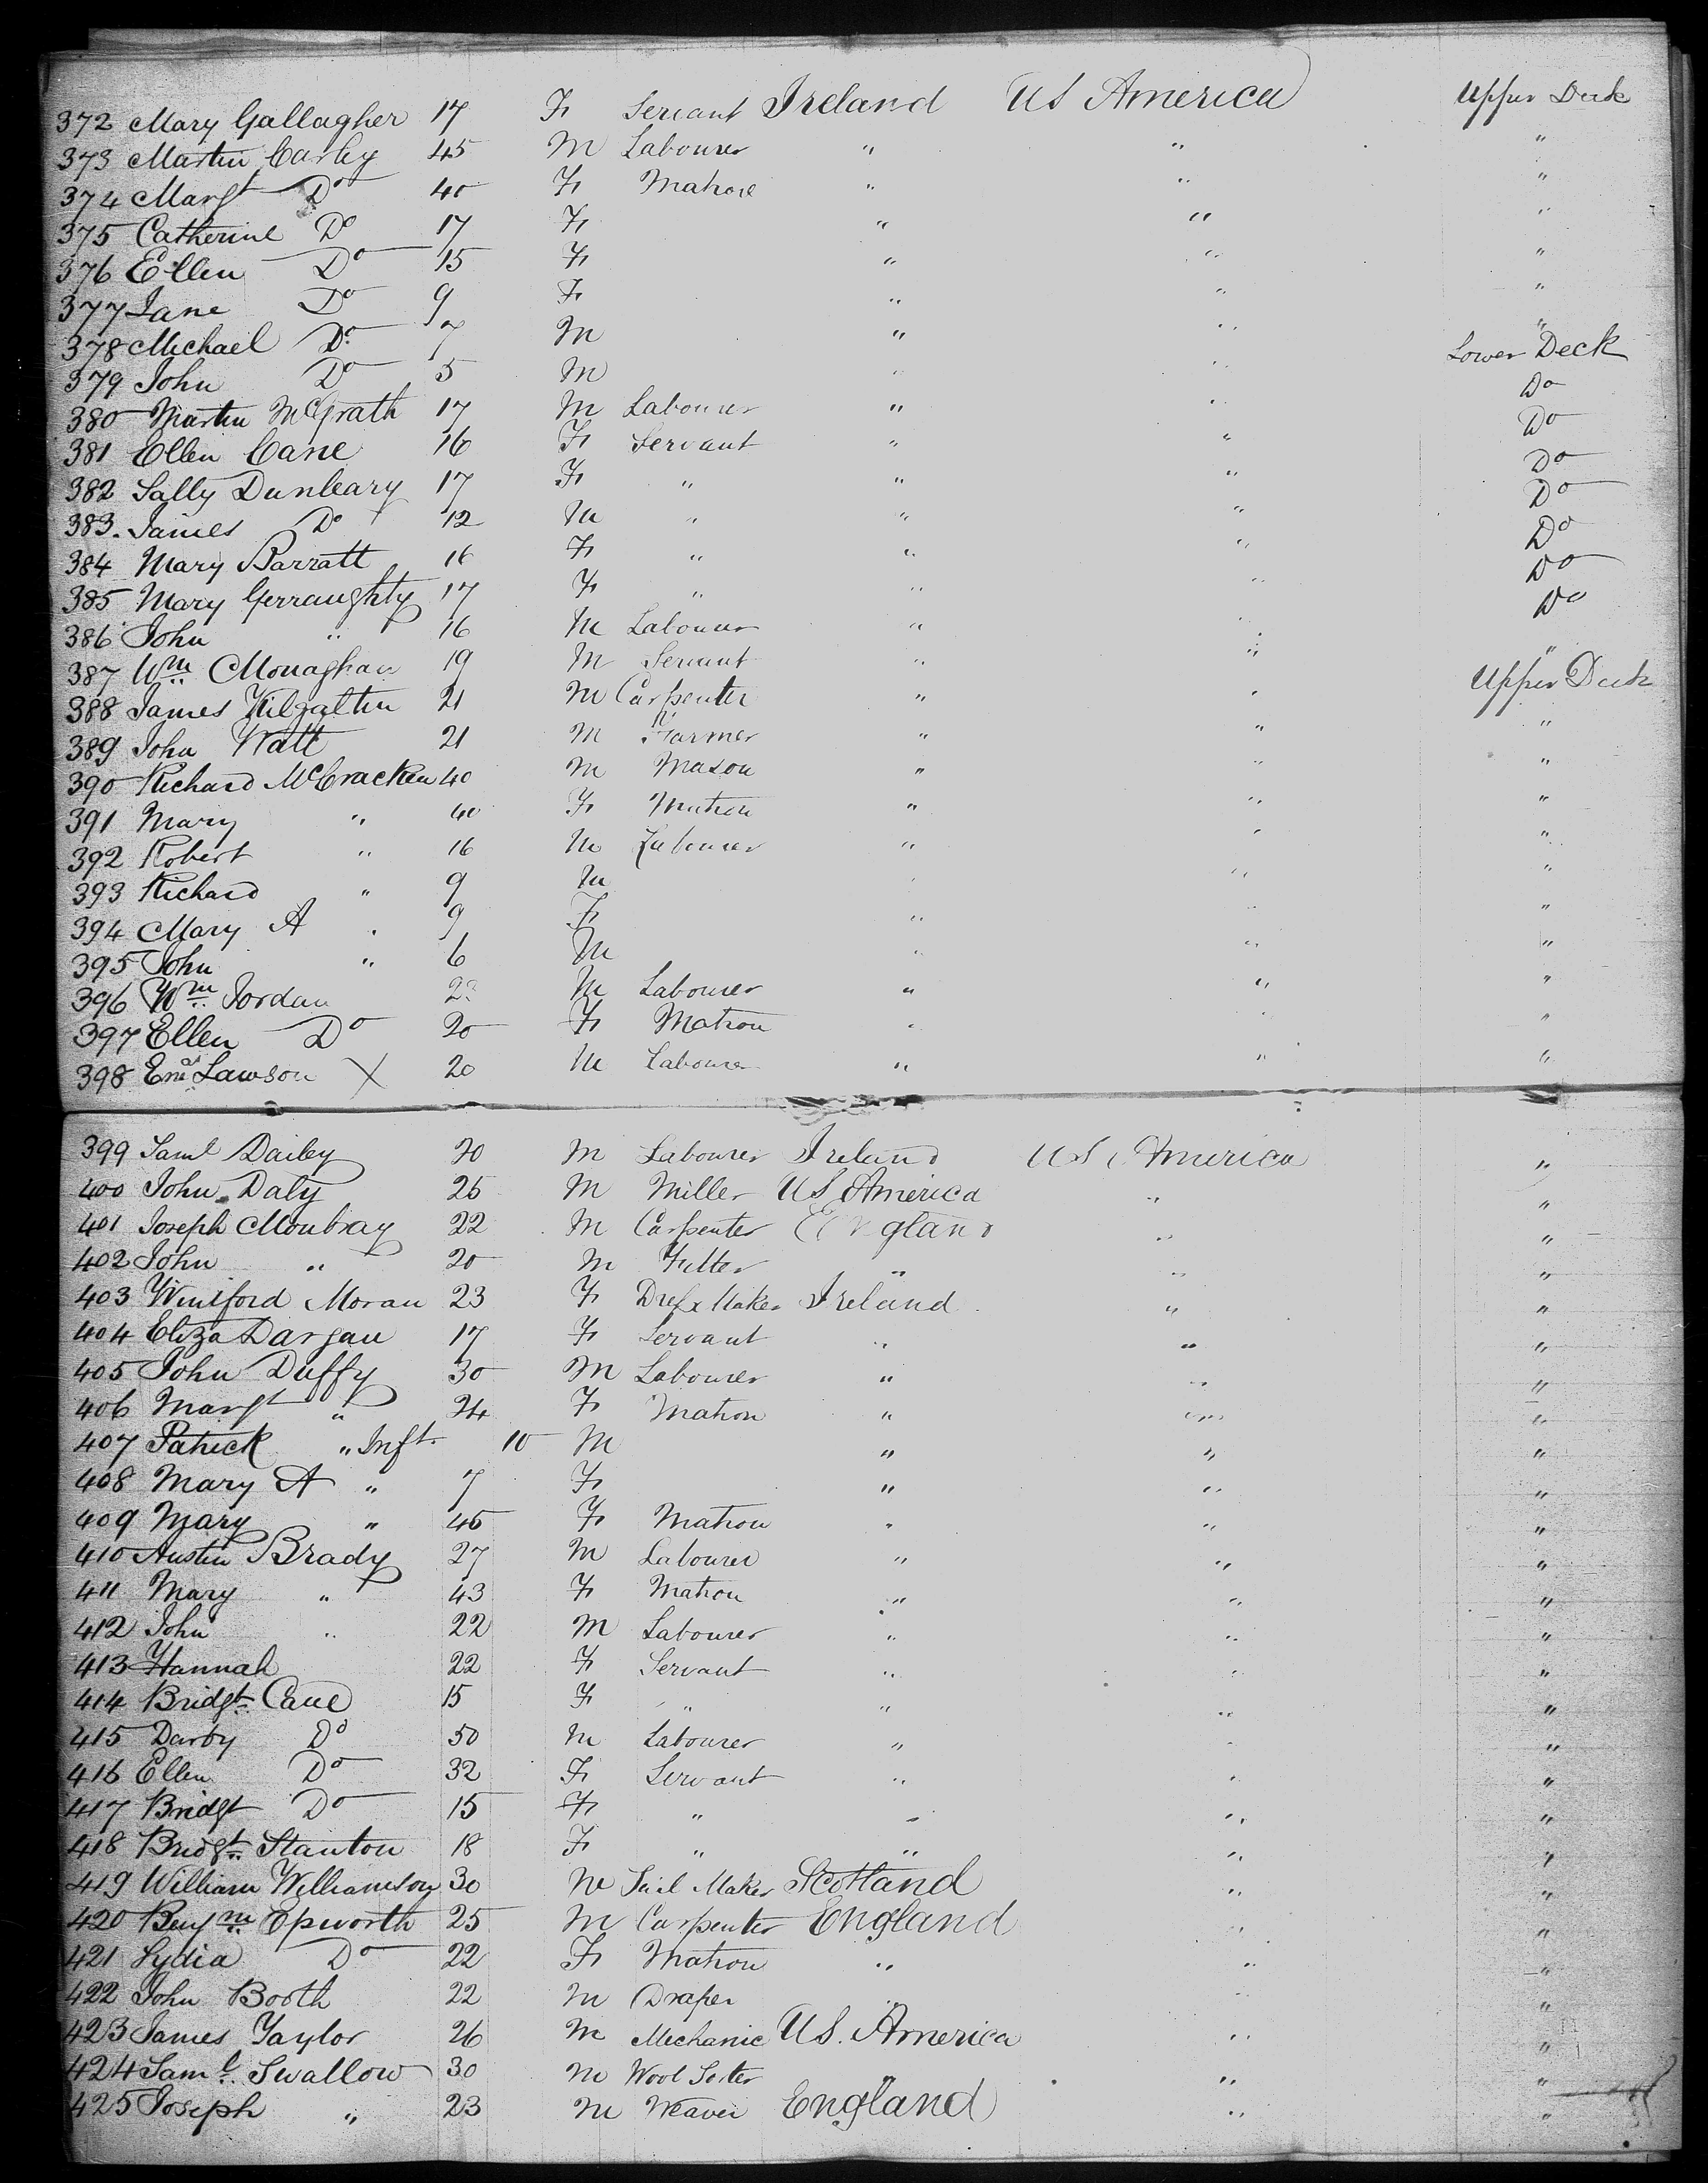 372 Mary Gallagher 17 F Servant Ireland US America Upper Deck
373 Martin Carley 45 M Labourer " " "
374 Margt Do 40 F Matron " " "
375 Catherine Do 17 F " " "
376 Ellen Do 15 F " " "
377 Jane Do 9 F " " "
378 Michael Do 7 M " " "
379 John Do 5 M " " Lower Deck
380 Martin McGrath 17 M Labourer " " Do
381 Ellen Cane 16 F Servant " " Do
382 Sally Dunleary 17 F " " " Do
383. James Do 12 M " " " Do
384 Mary Barratt 16 F " " " Do
385 Mary Gerraughty 17 F " " " Do
386 John " 16 M Labourer " " Do
387 Wm Monaghan 19 M Servant " " "
388 James Kilgaltin 21 M Carpenter " " Upper Deck
389 John Watt 21 M Farmer " " "
390 Richard McCracken 40 M Mason " " "
391 Mary " 40 F Matron " " "
392 Robert " 16 M Labourer " " "
393 Richard " 9 M " " "
394 Mary A " 9 F " " "
395 John " 6 M " " "
396 Wm Jordan M Labourer " " "
397 Ellen Do 20 F Matron " " "
398 Lawson X 20 M Labourer " " "
399 Saml Dailey 20 M Labourer Ireland US America "
400 John Daly 25 M Miller US America " "
401 Joseph Moubray 22 M Carpenter England " "
402 John " 20 M " " "
403 Winiford Moran 23 F Dress Maker Ireland " "
404 Eliza Dargan 17 F Servant " " "
405 John Duffy 30 M Labourer " " "
406 Margt " 24 F Matron " " "
407 Patrick " Inft 10 M " " "
408 Mary A " 7 F " " "
409 Mary " 45 F Matron " " "
410 Austin Brady 27 M Labourer " " "
411 Mary " 43 F Matron " " "
412 John " 22 M Labourer " " "
413 Hannah 22 F Servant " " "
414 Bridgt Cane 15 F " " " "
415 Darby Do 50 M Labourer " " "
416 Ellen Do 32 F Servant " " "
417 Bridgt Do 15 F " " " "
418 Bridgt Stanton 18 F " " " "
419 William Williamson 30 M Sail Maker Scotland " "
420 Benjm Epworth 25 M Carpenter England " "
421 Lydia Do 22 F Matron " " "
422 John Booth 22 M Draper " " "
423 James Taylor 26 M Mechanic US. America " "
424 Saml Swallow 30 M Wool Sorter " " "
425 Joseph " 23 M Weaver England " "